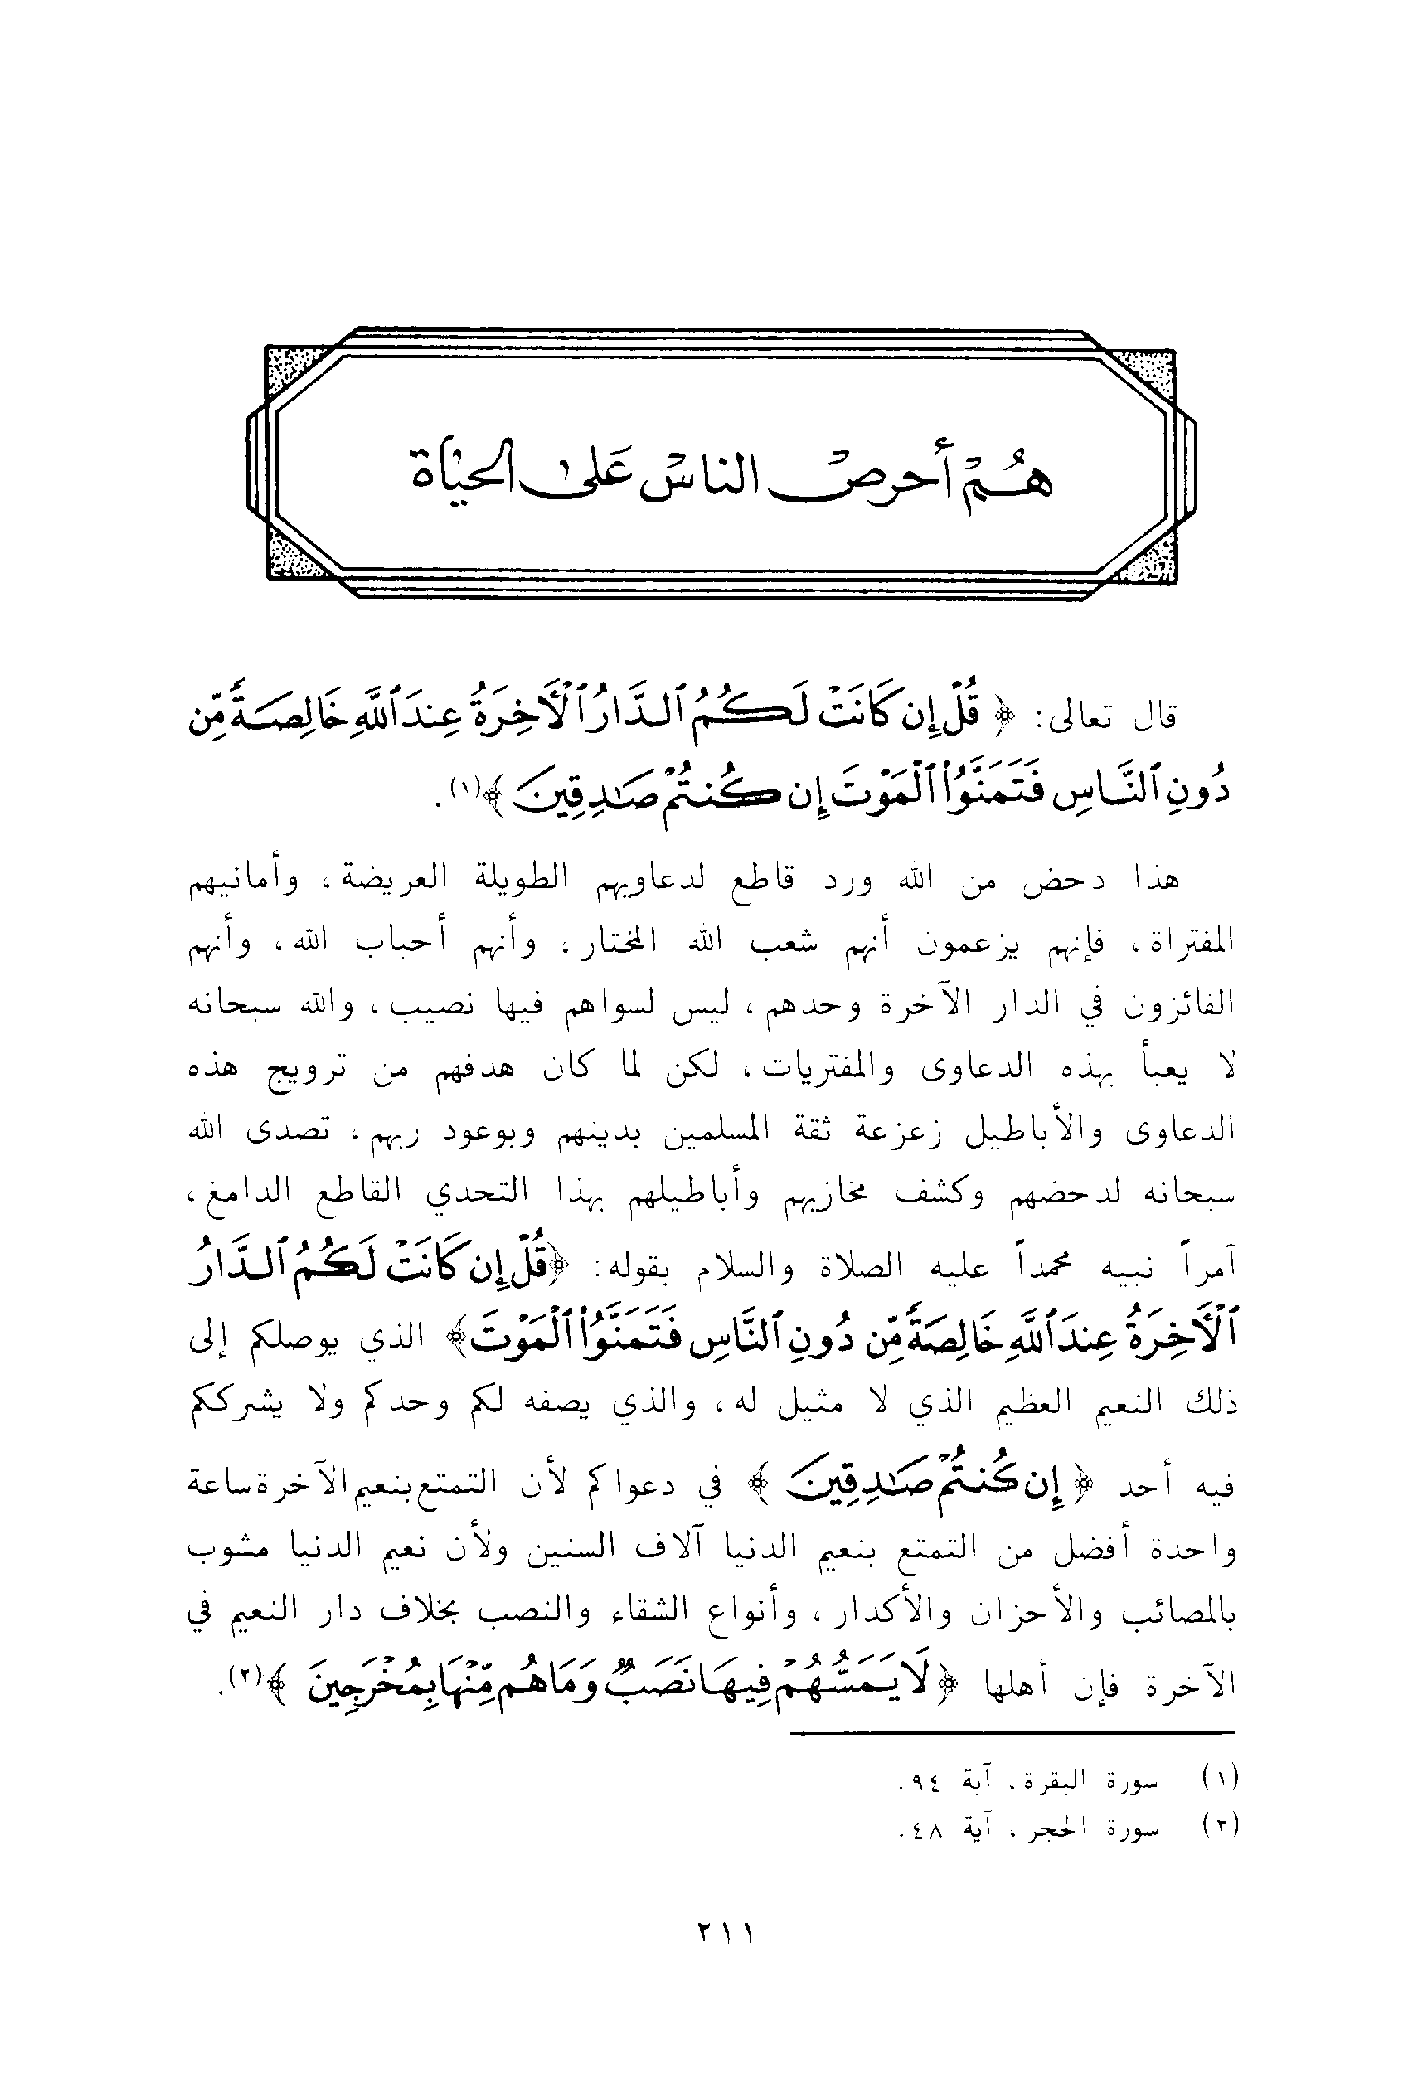 هُمْ أحرصْ الناسْ عَلى الحيَاة
قال تعالى: ﴿ قُلْ إِن كَانَتْ لَكُمُ ٱلدَّارُ ٱلْأَخِرَةُ عِندَ ٱللَّهِ خَالِصَةً مِّن
دُونِ ٱلنَّاسِ فَتَمَنَّوُا۟ ٱلْمَوْتَ إِن كُنتُمْ صَـٰدِقِينَ ﴾(١).
هذا دحض من الله ورد قاطع لدعاويهم الطويلة العريضة، وأمانيهم
المفتراة، فإنهم يزعمون أنهم شعب الله المختار، وأنهم أحباب الله، وأنهم
الفائزون في الدار الآخرة وحدهم، ليس لسواهم فيها نصيب، والله سبحانه
لا يعبأ بهذه الدعاوى والمفتريات، لكن لما كان هدفهم من ترويج هذه
الدعاوى والأباطيل زعزعة ثقة المسلمين بدينهم وبوعود ربهم، تصدى الله
سبحانه لدحضهم وكشف مخازيهم وأباطيلهم بهذا التحدي القاطع الدامغ،
آمراً نبيه محمداً عليه الصلاة والسلام بقوله: ﴿قُلْ إِن كَانَتْ لَكُمُ ٱلدَّارُ
ٱلْأَخِرَةُ عِندَ ٱللَّهِ خَالِصَةً مِّن دُونِ ٱلنَّاسِ فَتَمَنَّوُا۟ ٱلْمَوْتَ﴾ الذي يوصلكم إلى
ذلك النعيم العظيم الذي لا مثيل له، والذي يصفه لكم وحدكم ولا يشرككم
فيه أحد ﴿ إِن كُنتُمْ صَـٰدِقِينَ ﴾ في دعواكم لأن التمتع بنعيم الآخرة ساعة
واحدة أفضل من التمتع بنعيم الدنيا آلاف السنين ولأن نعيم الدنيا مشوب
بالمصائب والأحزان والأكدار، وأنواع الشقاء والنصب بخلاف دار النعيم في
الآخرة فإن أهلها ﴿ لَا يَمَسُّهُمْ فِيهَا نَصَبٌ وَمَا هُم مِّنْهَا بِمُخْرَجِينَ ﴾(٢).
(١) سورة البقرة، آية ٩٤.
(٢) سورة الحجر، آية ٤٨.
٢١١